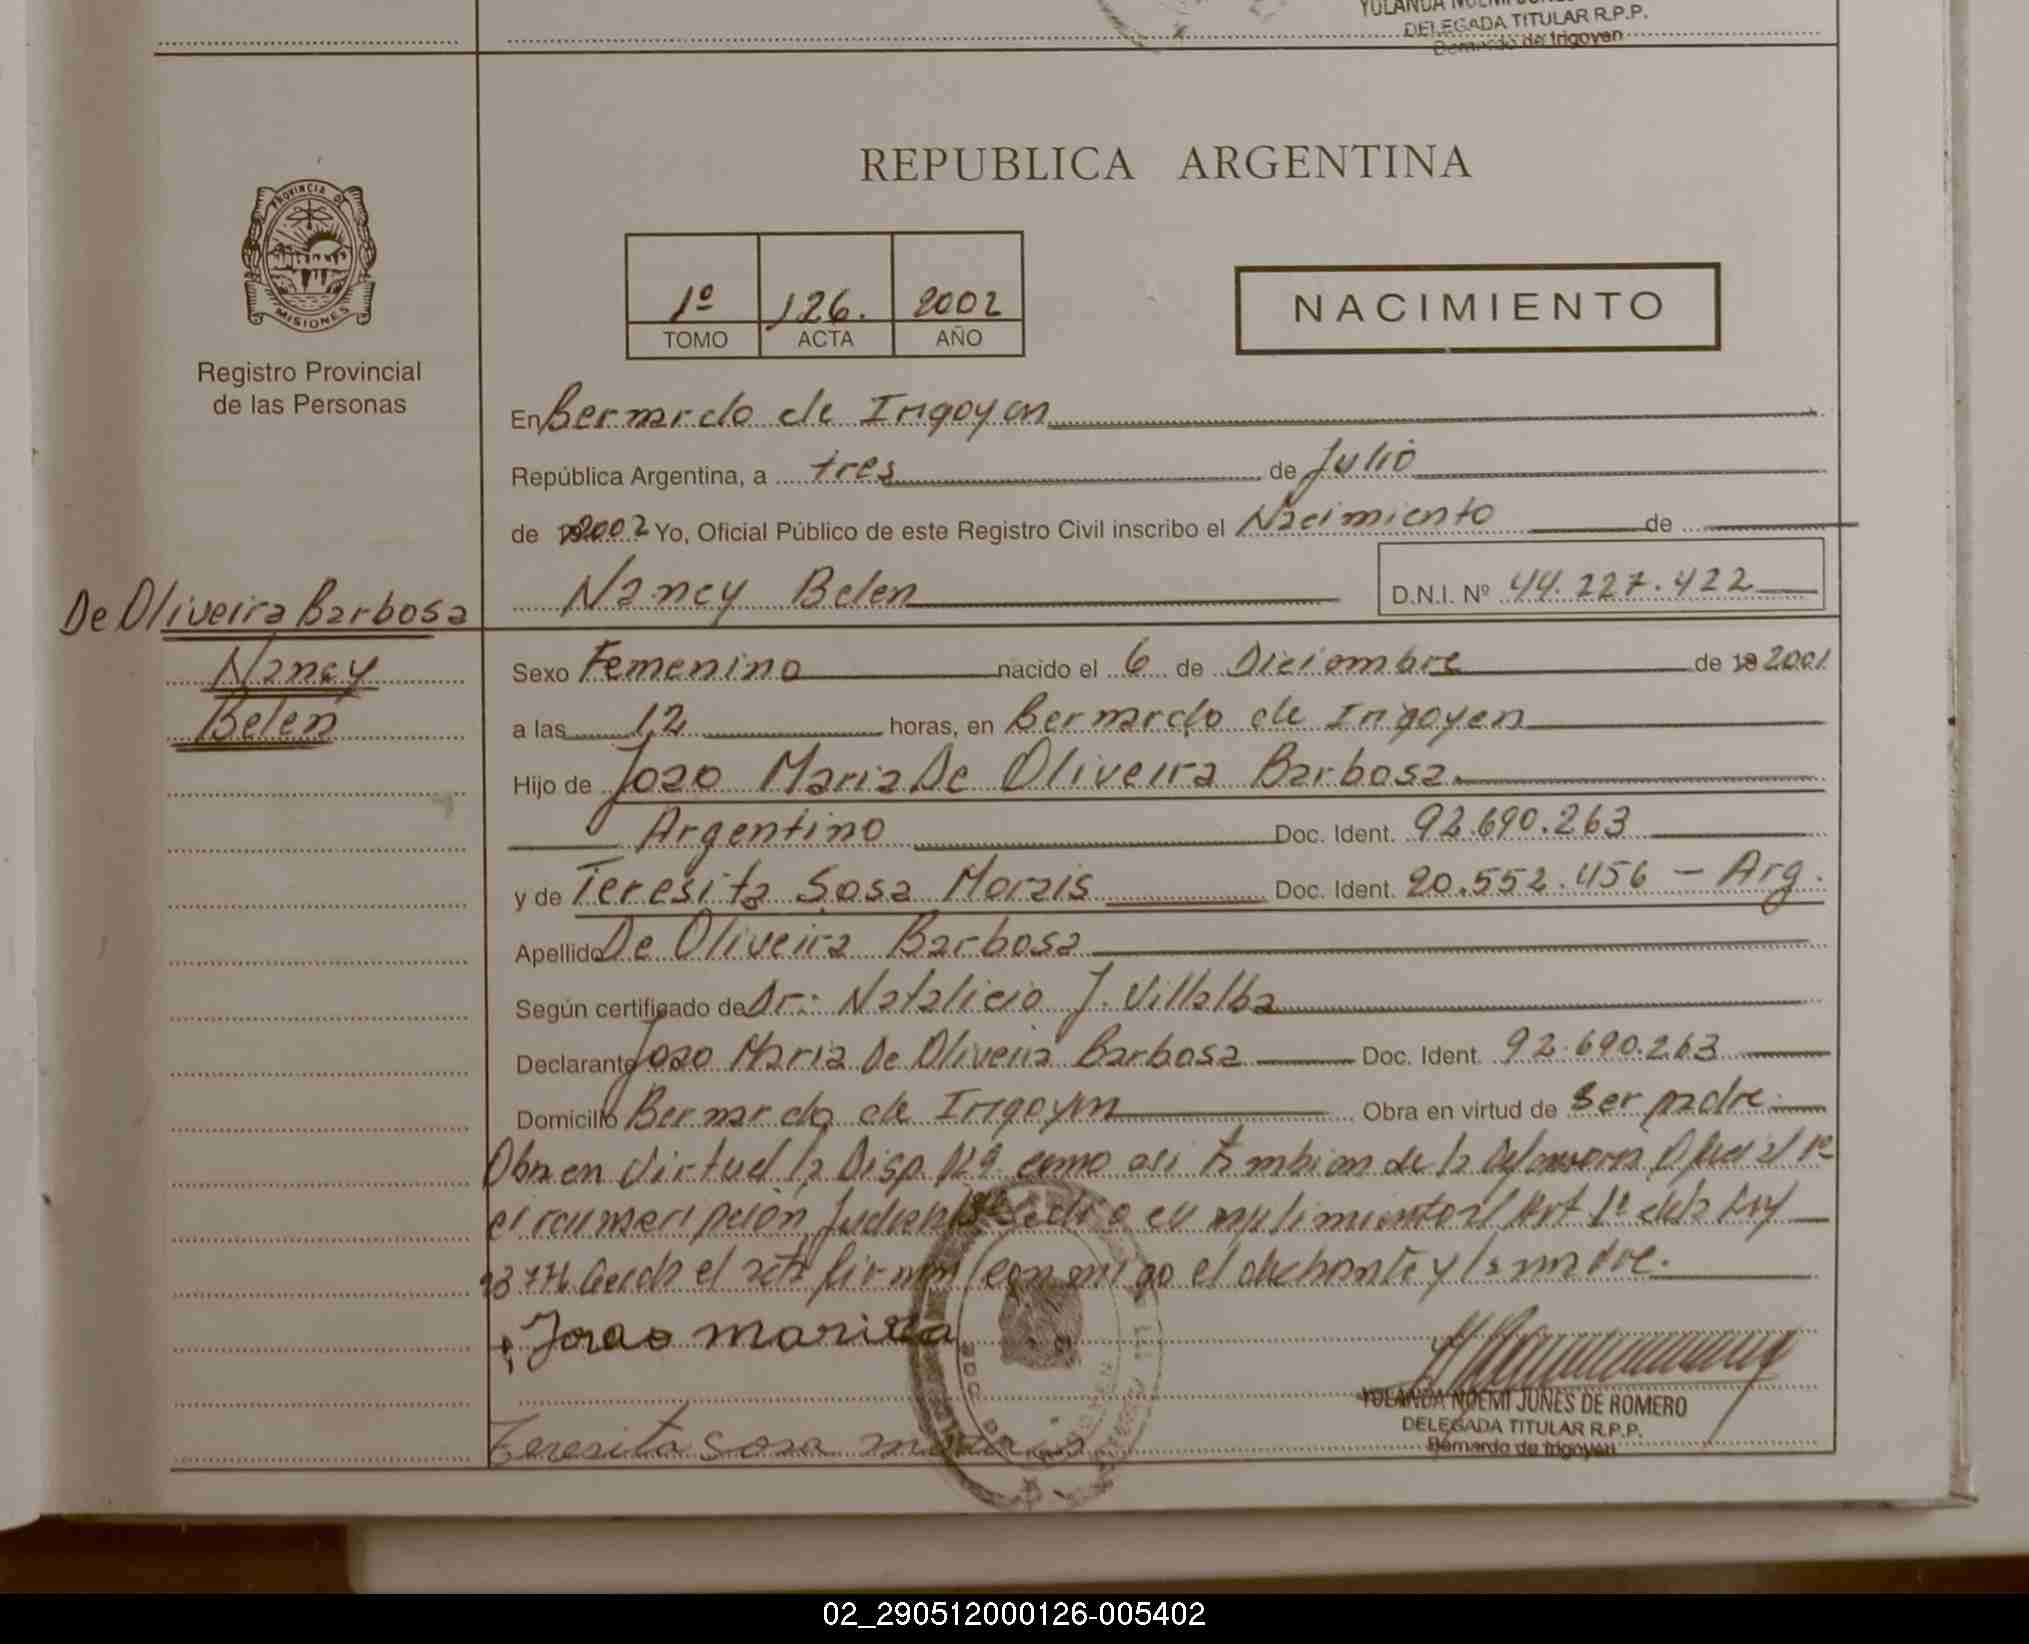 YOLANDA NOEMI JUNES
DELEGADA TITULAR R.P.P.
Bernardo de Irigoyen
REPUBLICA ARGENTINA
PROVINCIA DE
MISIONES
1º 126. 2002
TOMO ACTA AÑO
NACIMIENTO
Registro Provincial
de las Personas
En Bernardo de Irigoyen
República Argentina, a tres de Julio
de 2002 Yo, Oficial Público de este Registro Civil inscribo el Nacimiento de
Nancy Belen D.N.I. Nº 44.227.422
De Oliveira Barbosa
Nancy
Belen
Sexo Femenino nacido el 6 de Diciembre de 19 2001
a las 12 horas, en Bernardo de Irigoyen
Hijo de Joao Maria De Oliveira Barbosa.
Argentino Doc. Ident. 92.690.263
y de Teresita Sosa Morais Doc. Ident. 20.552.456 - Arg.
Apellido De Oliveira Barbosa
Según certificado de Dr: Natalicio J. Villalba
Declarante Joao Maria De Oliveira Barbosa Doc. Ident. 92.690.263
Domicilio Bernardo de Irigoyen Obra en virtud de ser padre
Obra en virtud la Disp. como asi tambien de la Defensoria Oficial 1º
circunscripción Judicial cumplimiento al Art 1º de la Ley
el acta firman conmigo el declarante y la madre.
Joao maria
Teresita sosa morais
YOLANDA NOEMI JUNES DE ROMERO
DELEGADA TITULAR R.P.P.
Bernardo de Irigoyen
02_290512000126-005402